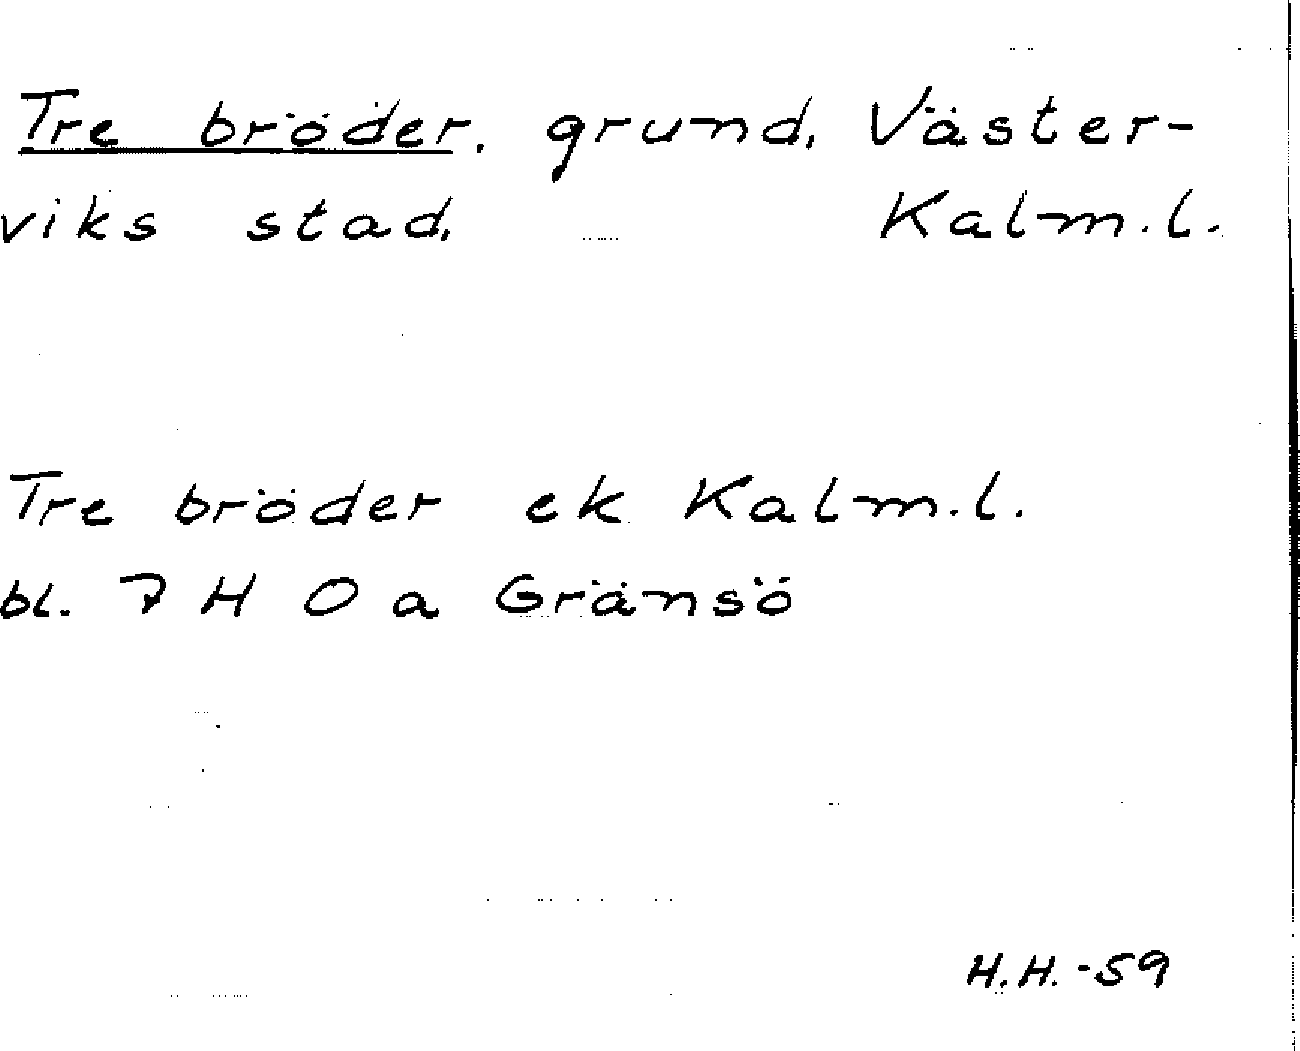 Tre bröder, grund, Väster-
viks stad, Kalm.l.
Tre bröder ek Kalm.l.
bl. 7 H O a Gränsö
H.H.-59